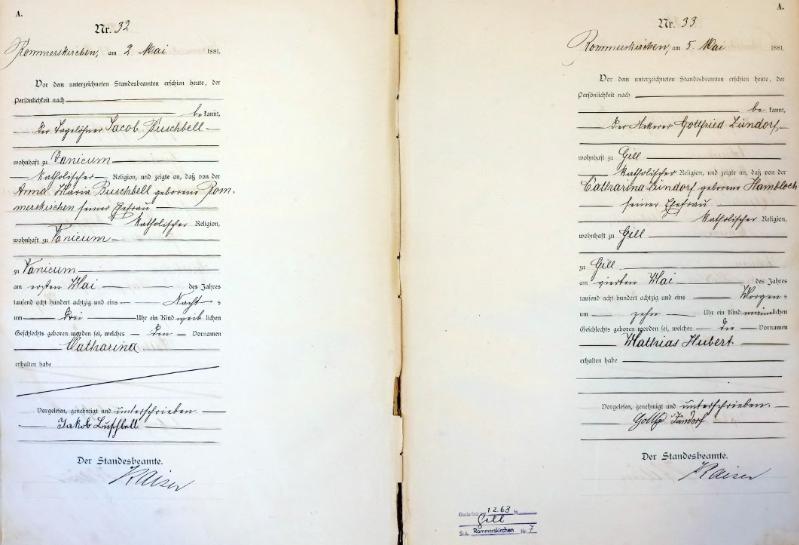 A.
Nr. 32
Rommerskirchen, am 2 Mai 1881.
Vor dem unterzeichneten Standesbeamten erschien heute, der
Persönlichkeit nach
be kannt,
der Tagelöhner Jacob Buschbell
wohnhaft zu Vanicum
katholischer Religion, und zeigte an, daß von der
Anna Maria Buschbell geborene Rom-
merskirchen seiner Ehefrau
katholischer Religion,
wohnhaft zu Vanicum
zu Vanicum
am ersten Mai des Jahres
tausend acht hundert achtzig und eins Nacht-
um drei Uhr ein Kind weib lichen
Geschlechts geboren worden sei, welches den Vornamen
Catharina
erhalten habe
Vorgelesen, genehmigt und unterschrieben
Jakob Buschbell
Der Standesbeamte.
Kaiser
A.
Nr. 33
Rommerskirchen, am 5. Mai 1881.
Vor dem unterzeichneten Standesbeamten erschien heute, der
Persönlichkeit nach
be kannt,
der Ackerer Gottfried Zündorf,
wohnhaft zu Gill
katholischer Religion, und zeigte an, daß von der
Catharina Zündorf geborene Hambloch
seiner Ehefrau
katholischer Religion,
wohnhaft zu Gill
zu Gill
am vierten Mai des Jahres
tausend acht hundert achtzig und eins Morgen-
um zehn Uhr ein Kind männlichen
Geschlechts geboren worden sei, welches die Vornamen
Mathias Hubert
erhalten habe
Vorgelesen, genehmigt und unterschrieben
Gottfr Zündorf
Der Standesbeamte.
Kaiser
1263
Gill
Rommerskirchen Nr. 7